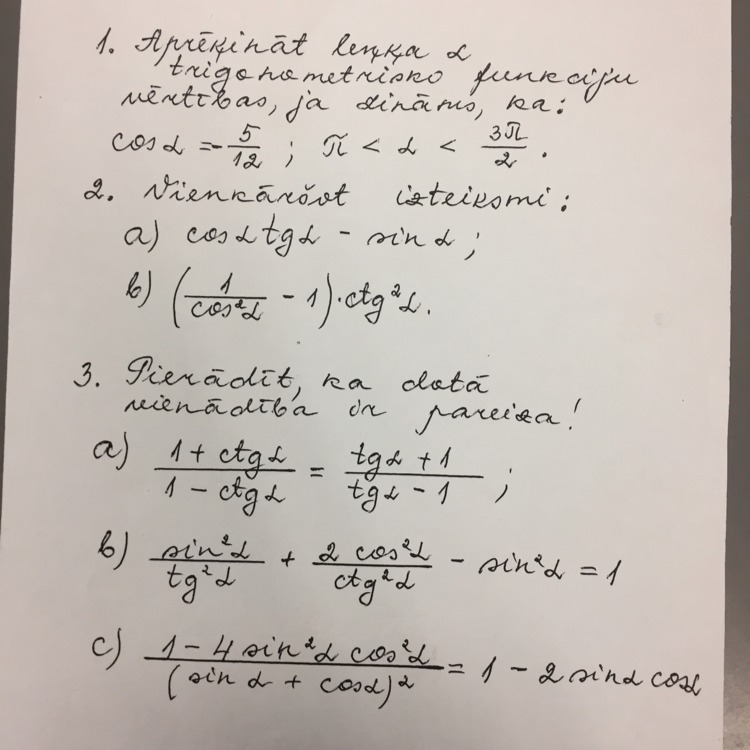 1. Aprēķināt leņķa α
trigonometrisko funkciju
vērtības, ja zināms, ka:
cosα = -5/12 ; π < α < 3π/2 .
2. Vienkāršot izteiksmi:
a) cosα tgα - sinα ;
b) (1/cos²α - 1)·ctg²α.
3. Pierādīt, ka dotā
vienādība ir pareiza!
a) (1 + ctgα)/(1 - ctgα) = (tgα + 1)/(tgα - 1) ;
b) sin²α/tg²α + 2 cos²α/ctg²α - sin²α = 1
c) (1 - 4 sin²α cos²α)/(sin α + cosα)² = 1 - 2 sinα cosα